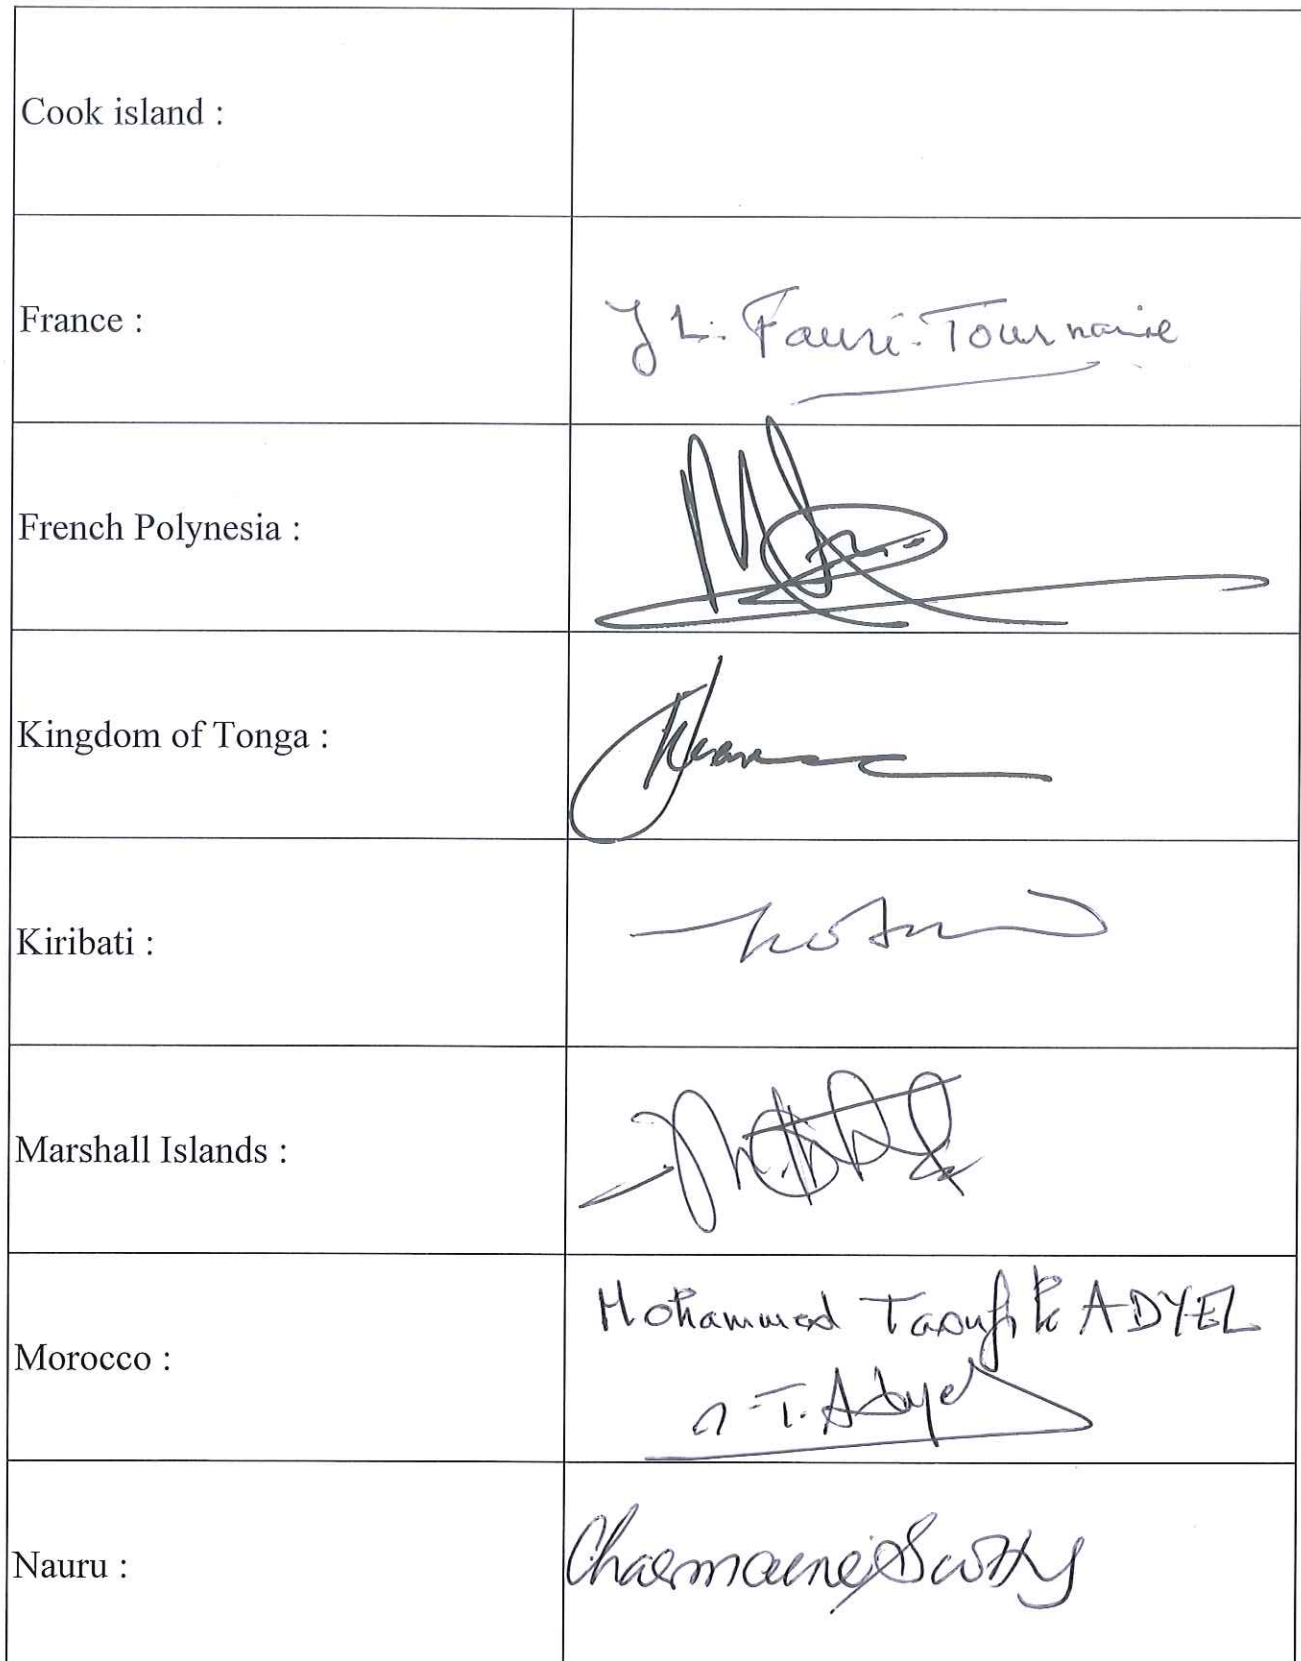 Cook island :
France :
J L. Fauré-Tournaire
French Polynesia :
Kingdom of Tonga :
Kiribati :
Marshall Islands :
Morocco :
Mohammed Taoufik ADYEL
T. Adyel
Nauru :
Charmaine Scotty